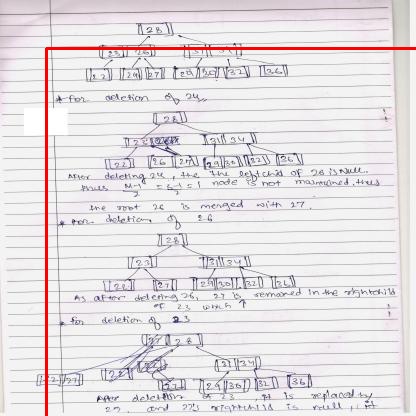 28
23 26 31 34
22 24 27 29 30 32 36
* for deletion of 24,
28
23 31 34
22 26 27 29 30 32 36
After deleting 24, the the leftchid of 26 is Null.
thus = 1 node is not maintained, thus
the root 26 is merged with 27.
* for deletion of 26
28
23 31 34
22 27 29 30 32 36
As after deleting 26, 27 is remained in the rightchild
of 23 which
* for deletion of 23
27 28
31 34
22 27 22 27 29 30 32 36
After deletion of 23, it is replaced by
22. and 22's rightchild is null, it